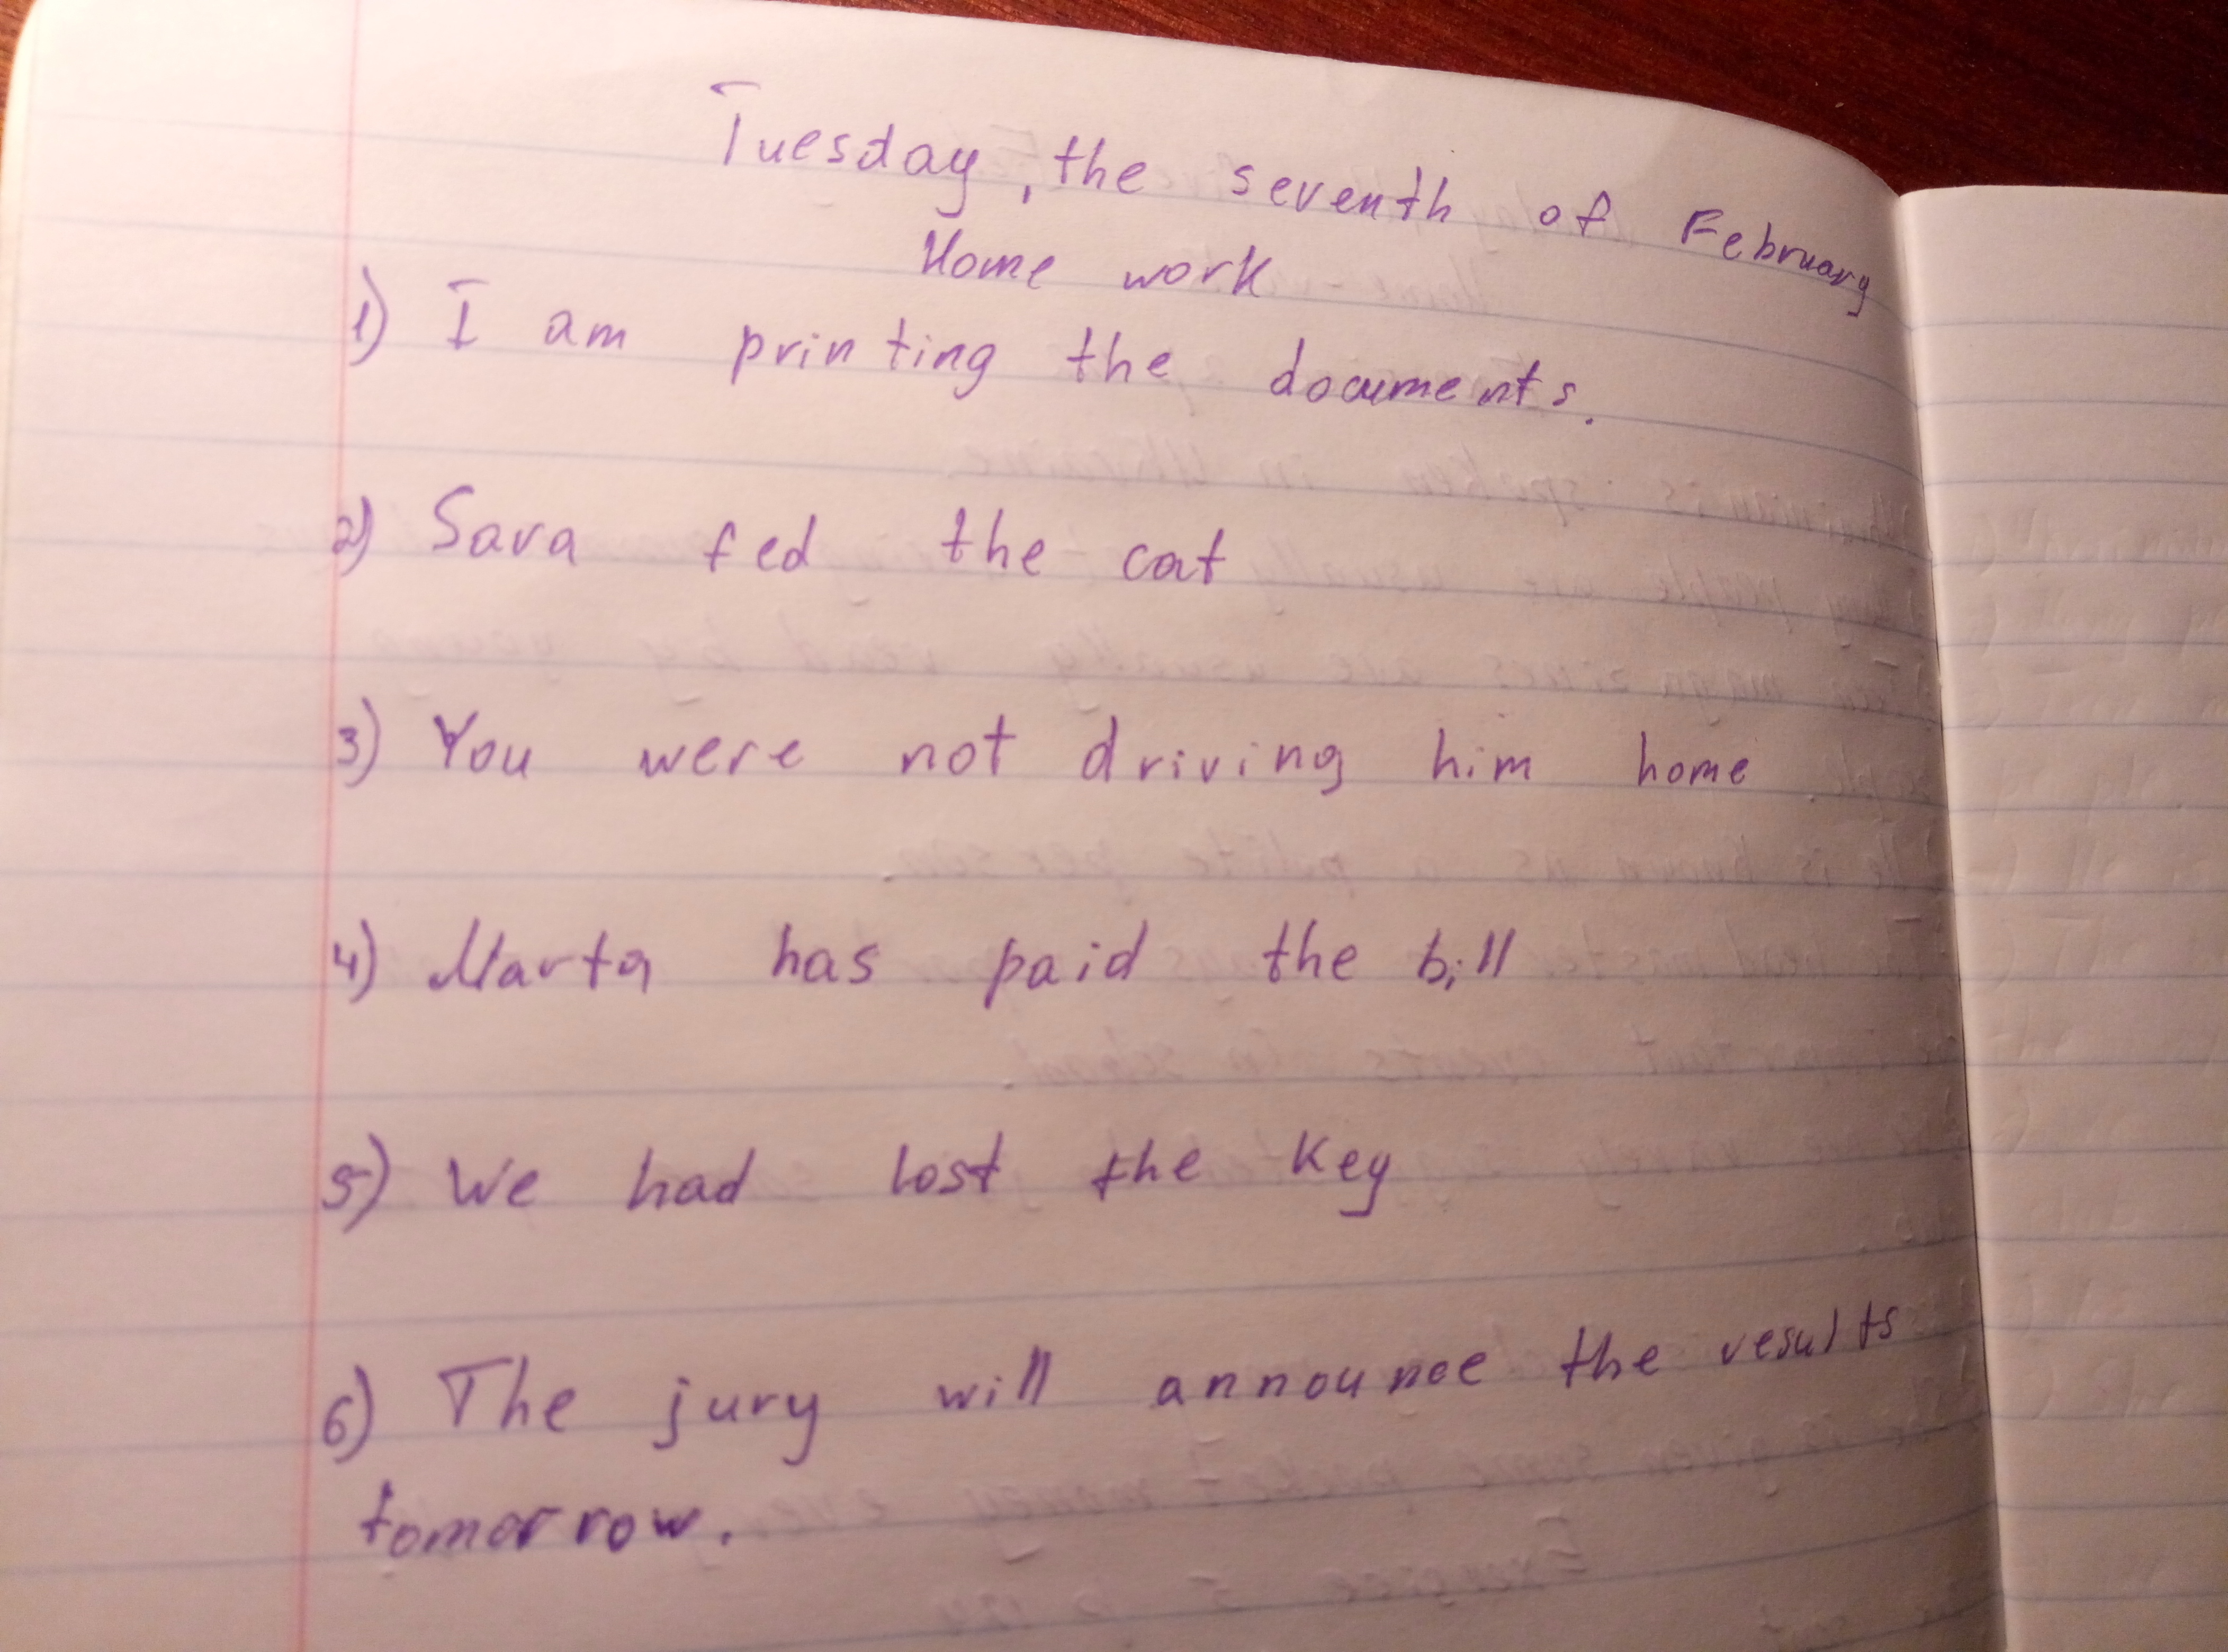 Tuesday, the seventh of February
Home work
1) I am printing the documents.
2) Sara fed the cat
3) You were not driving him home
4) Marta has paid the bill
5) We had lost the key
6) The jury will announce the results
tomorrow.